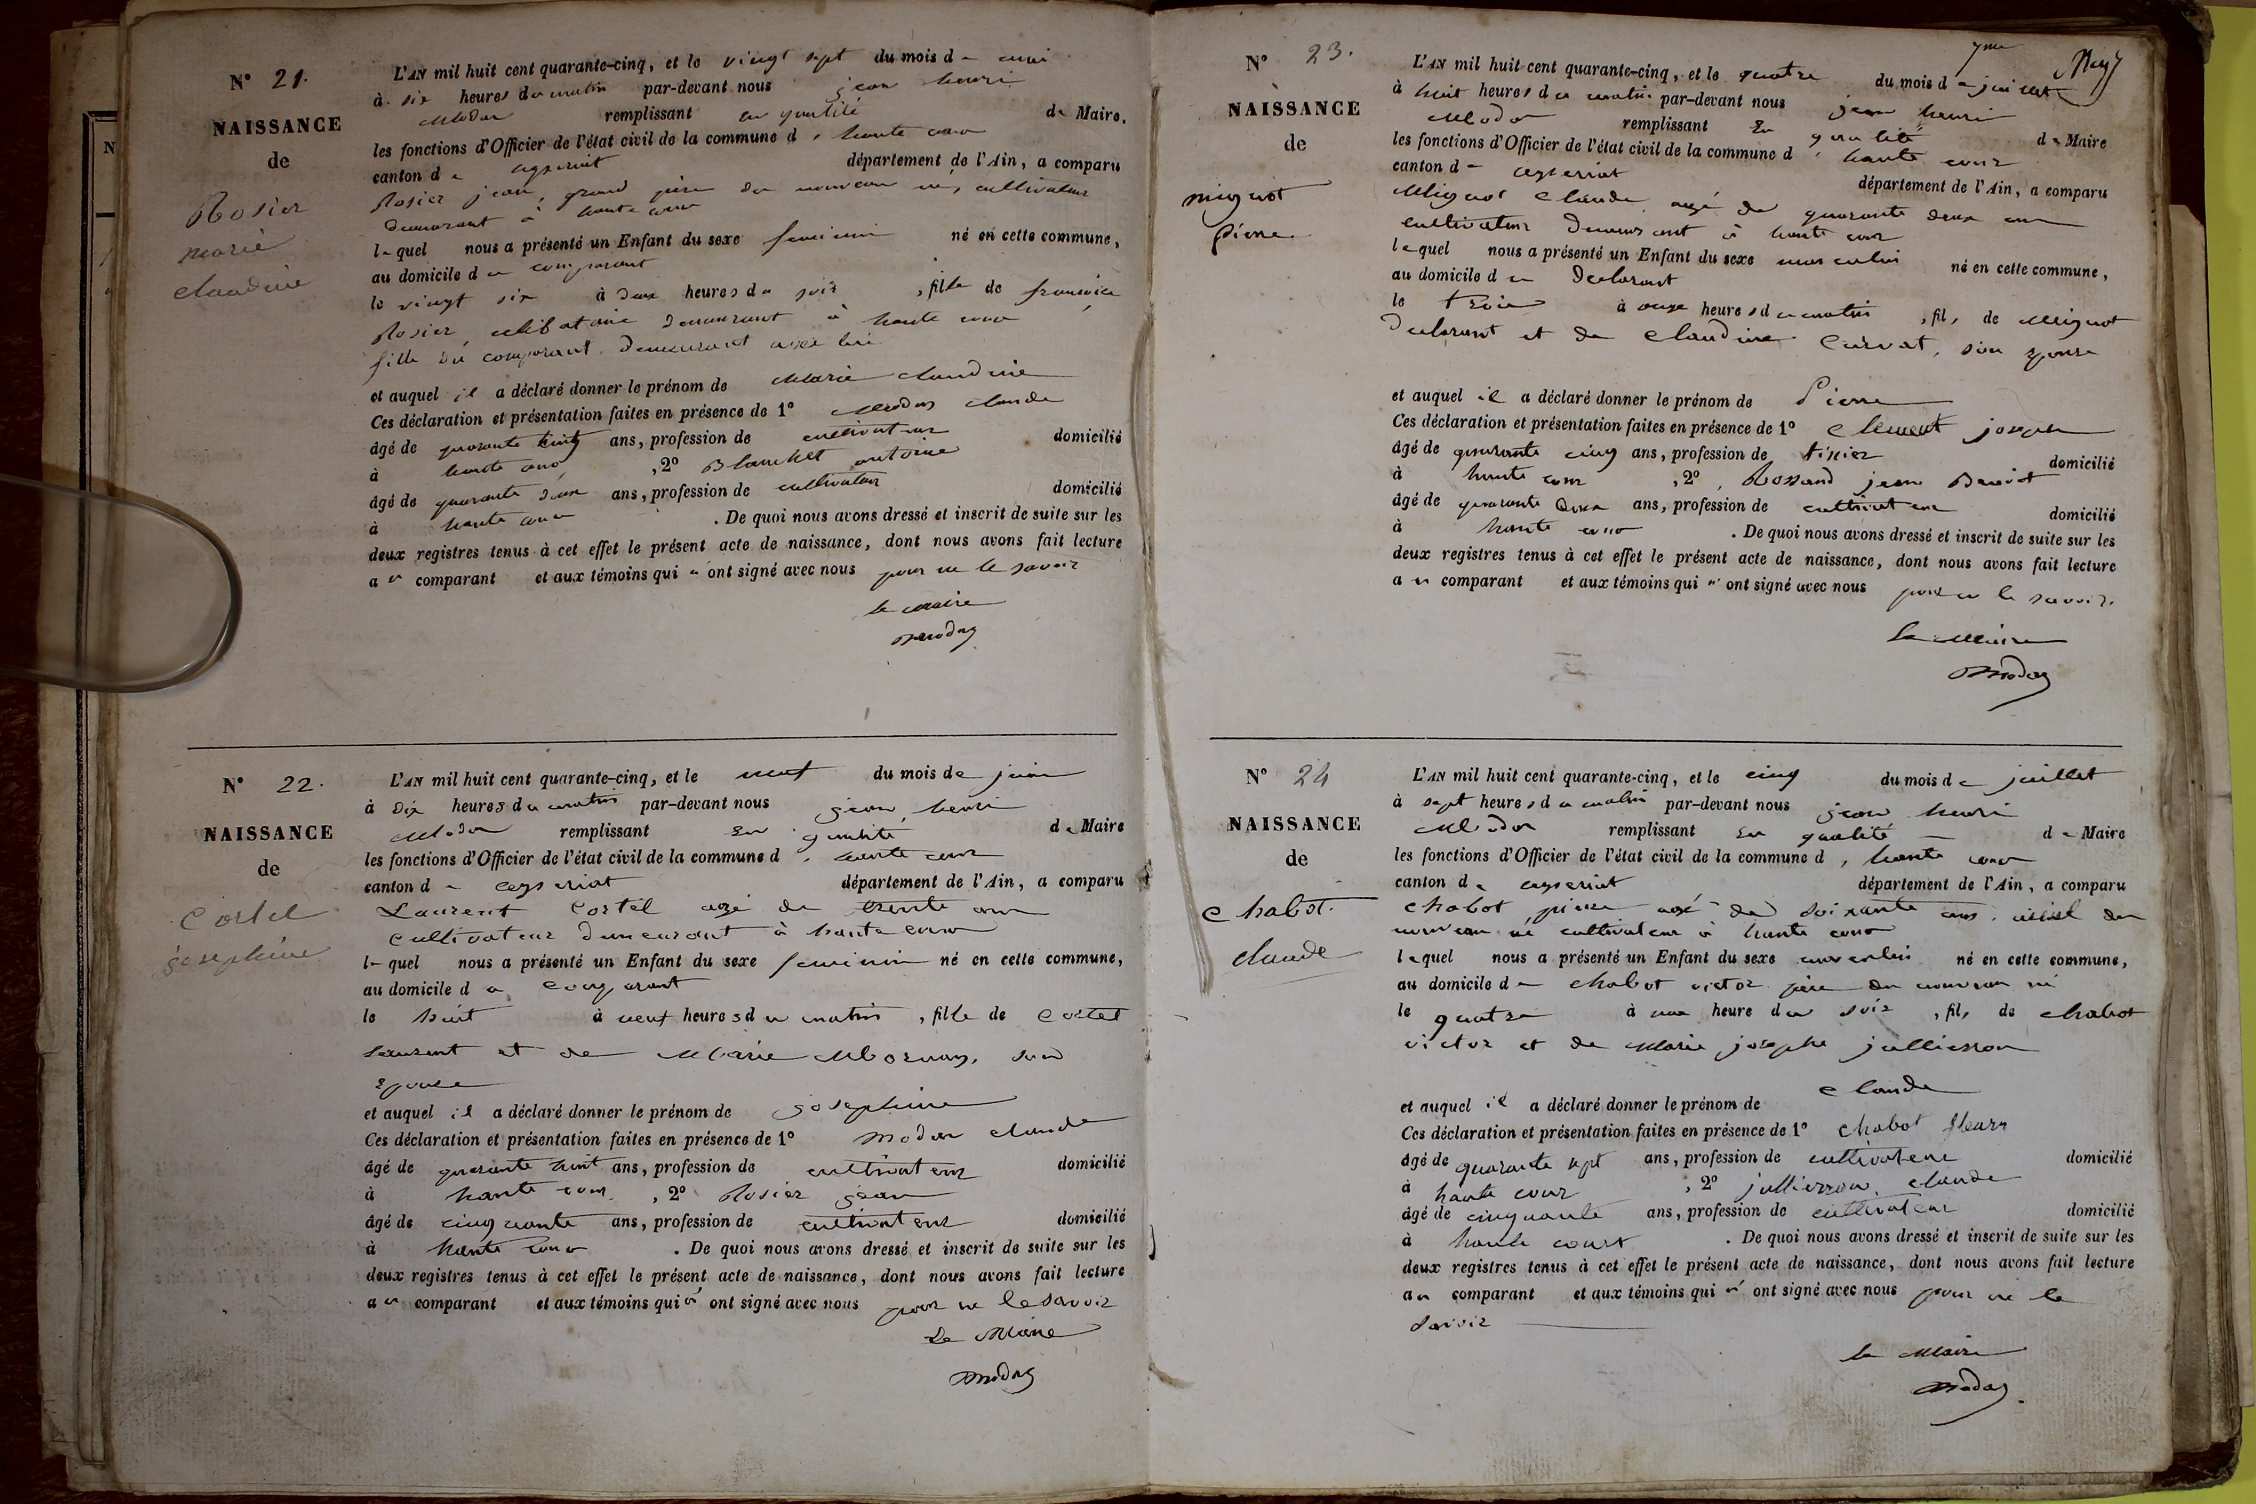 N° 21.
NAISSANCE
de
Rosier
marie
claudine
L'AN mil huit cent quarante-cinq, et le vingt sept du mois de mai
à six heures du matin par-devant nous jean henri
Modas remplissant en qualité de Maire.
les fonctions d'Officier de l'état civil de la commune d'haute cour
canton de département de l'Ain, a comparu
Rosier jean, grand père du nouveau né, cultivateur
demeurant à haute cour
lequel nous a présenté un Enfant du sexe feminin né en cette commune,
au domicile du comparant
le vingt six à deux heures du soir, fille de françoise
Rosier, celibataire demeurant à haute cour
fille du comparant demeurant avec lui
et auquel il a déclaré donner le prénom de Marie claudine
Ces déclaration et présentation faites en présence de 1° Modas claude
âgé de quarante cinq ans, profession de cultivateur domicilié
à haute cour, 2° Blanchet antoine
âgé de quarante deux ans, profession de cultivateur domicilié
à haute cour. De quoi nous avons dressé et inscrit de suite sur les
deux registres tenus à cet effet le présent acte de naissance, dont nous avons fait lecture
au comparant et aux témoins qui n'ont signé avec nous pour ne le savoir
le maire
Modas
N° 22.
NAISSANCE
de
Cortel
josephine
L'AN mil huit cent quarante-cinq, et le neuf du mois de juin
à dix heures du matin par-devant nous jean henri
Modas remplissant en qualité de Maire
les fonctions d'Officier de l'état civil de la commune d'haute cour
canton de ceyseriat département de l'Ain, a comparu
Laurent Cortel agé de trente ans
cultivateur demeurant à haute cour
lequel nous a présenté un Enfant du sexe feminin né en cette commune,
au domicile du comparant
le huit à neuf heures du matin, fille de Cortel
Laurent et de Marie Mornay, son
epouse
et auquel il a déclaré donner le prénom de josephine
Ces déclaration et présentation faites en présence de 1° Modas claude
âgé de quarante huit ans, profession de cultivateur domicilié
à haute cour, 2° Rosier jean
âgé de cinquante ans, profession de cultivateur domicilié
à haute cour. De quoi nous avons dressé et inscrit de suite sur les
deux registres tenus à cet effet le présent acte de naissance, dont nous avons fait lecture
au comparant et aux témoins qui n'ont signé avec nous pour ne le savoir
Le Maire
Modas
N° 23.
NAISSANCE
de
mignot
pierre
L'AN mil huit cent quarante-cinq, et le quatre du mois de juillet
à huit heures du matin par-devant nous jean henri
Modas remplissant en qualité de Maire
les fonctions d'Officier de l'état civil de la commune d'haute cour
canton de ceyseriat département de l'Ain, a comparu
Mignot claude agé de quarante deux ans
cultivateur demeurant à haute cour
lequel nous a présenté un Enfant du sexe masculin né en cette commune,
au domicile du declarant
le trois à onze heures du matin, fils de Mignot
declarant et de claudine Curvat, son epouse
et auquel il a déclaré donner le prénom de Pierre
Ces déclaration et présentation faites en présence de 1° Clement joseph
âgé de quarante cinq ans, profession de tisier domicilié
à haute cour, 2° Rossand jean Benoit
âgé de quarante deux ans, profession de cultivateur domicilié
à haute cour. De quoi nous avons dressé et inscrit de suite sur les
deux registres tenus à cet effet le présent acte de naissance, dont nous avons fait lecture
au comparant et aux témoins qui n'ont signé avec nous pour ne le savoir.
le Maire
Modas
N° 24
NAISSANCE
de
chabot.
claude
L'AN mil huit cent quarante-cinq, et le cinq du mois de juillet
à sept heures du matin par-devant nous jean henri
Modas remplissant en qualité de Maire
les fonctions d'Officier de l'état civil de la commune d'haute cour
canton de ceyseriat département de l'Ain, a comparu
chabot pierre agé de soixante ans, du
nouveau né cultivateur à haute cour
lequel nous a présenté un Enfant du sexe masculin né en cette commune,
au domicile de chabot victor père du nouveau né
le quatre à une heure du soir, fils de chabot
victor et de Marie josephe jullierron
et auquel il a déclaré donner le prénom de claude
Ces déclaration et présentation faites en présence de 1° chabot fleury
âgé de quarante sept ans, profession de cultivateur domicilié
à haute cour, 2° jullierron claude
âgé de cinquante ans, profession de cultivateur domicilié
à haute court. De quoi nous avons dressé et inscrit de suite sur les
deux registres tenus à cet effet le présent acte de naissance, dont nous avons fait lecture
au comparant et aux témoins qui n'ont signé avec nous pour ne le
savoir
le Maire
Modas